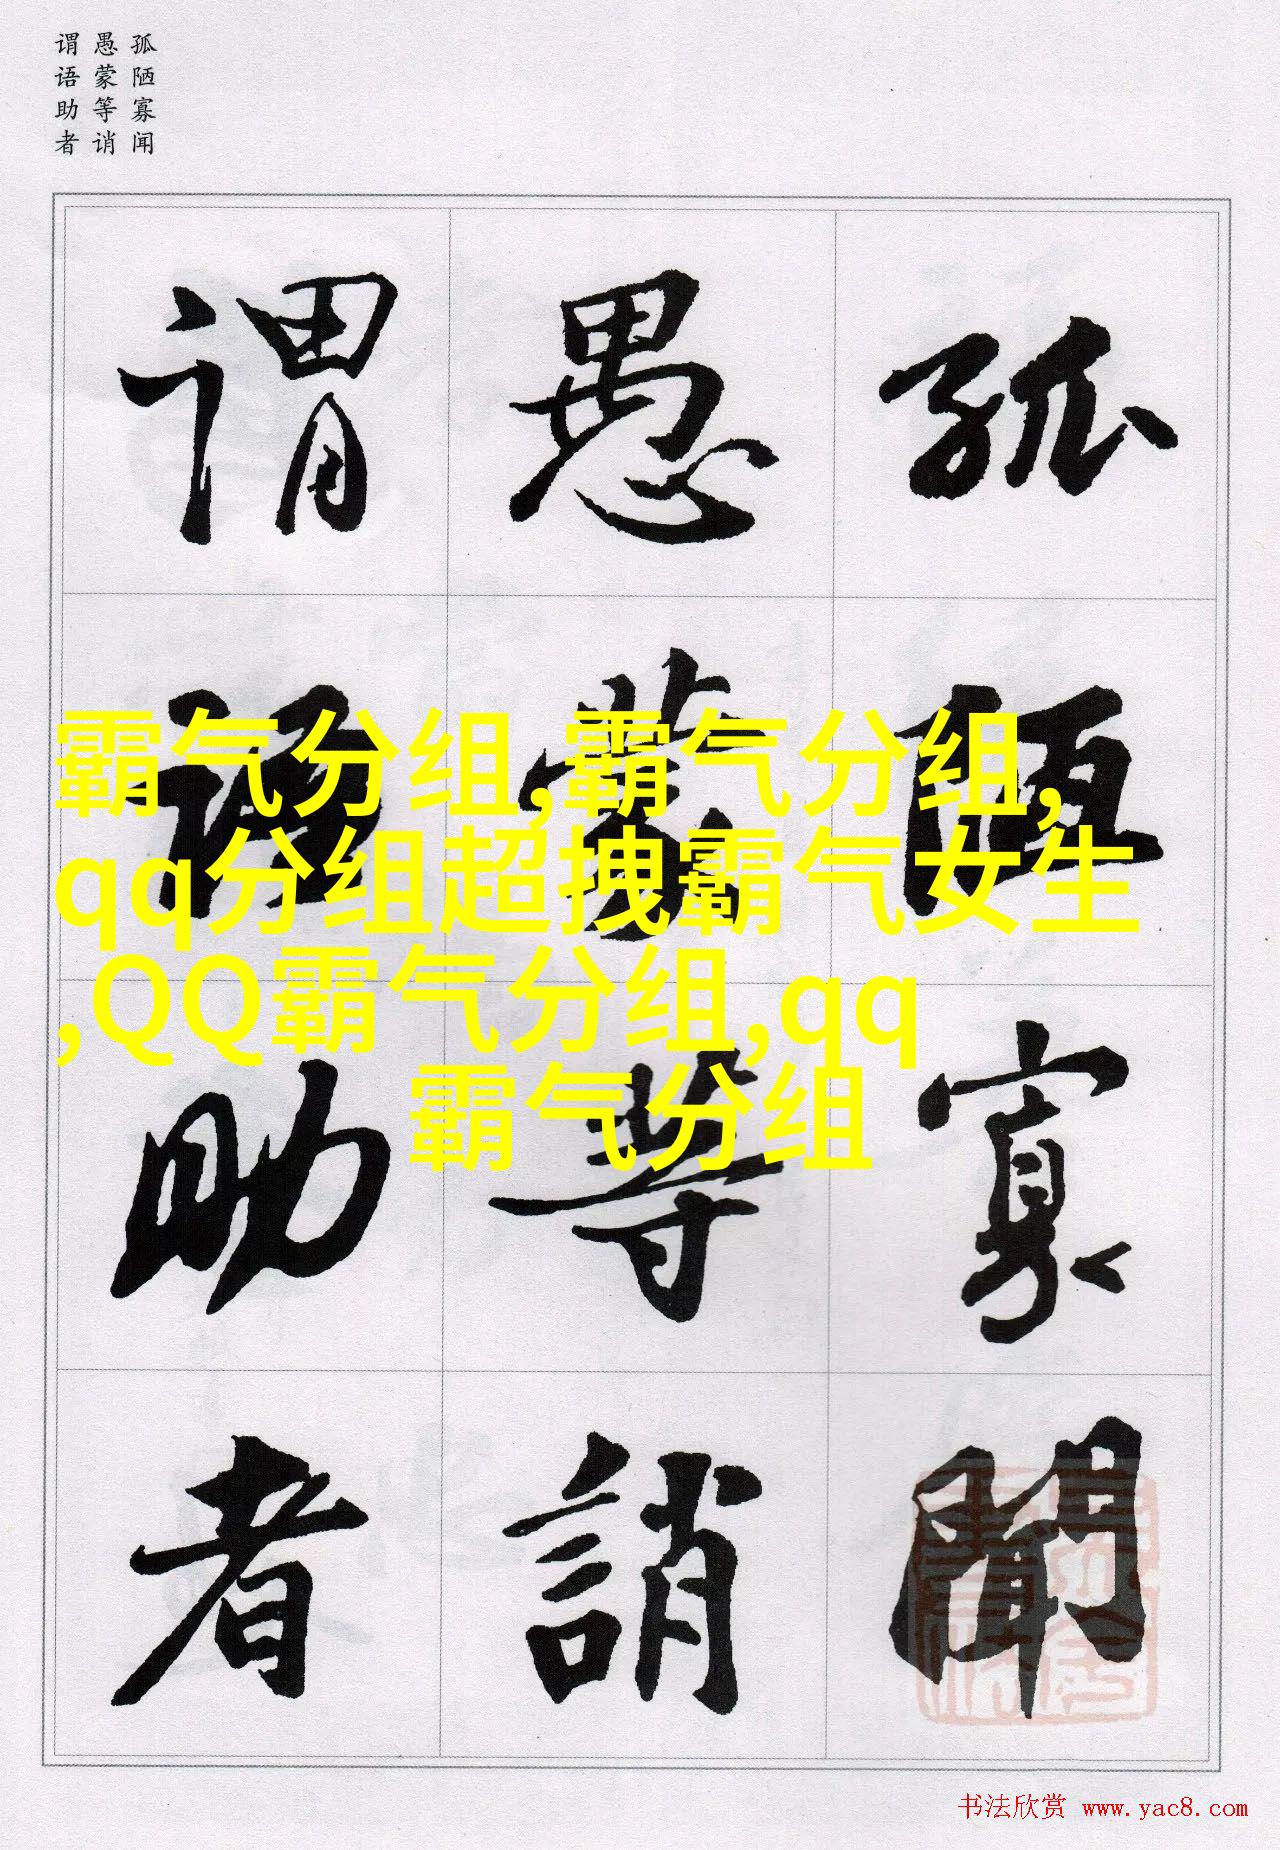 孤陋寡闻
愚蒙等诮
谓语助者
孤陋寡闻
愚蒙等誚
谓语助者
霸气分组,霸气分组,
qq分组超拽霸气女生
,QQ霸气分组,qq
霸气分组
书法欣赏 www.yac8.com